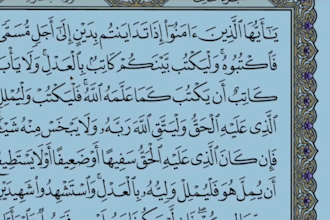 يَٰٓأَيُّهَا ٱلَّذِينَ ءَامَنُوٓا۟ إِذَا تَدَايَنتُم بِدَيْنٍ إِلَىٰٓ أَجَلٍ مُّسَمًّى
فَٱكْتُبُوهُ ۚ وَلْيَكْتُب بَّيْنَكُمْ كَاتِبٌۢ بِٱلْعَدْلِ ۚ وَلَا يَأْبَ
كَاتِبٌ أَن يَكْتُبَ كَمَا عَلَّمَهُ ٱللَّهُ ۚ فَلْيَكْتُبْ وَلْيُمْلِلِ
ٱلَّذِى عَلَيْهِ ٱلْحَقُّ وَلْيَتَّقِ ٱللَّهَ رَبَّهُۥ وَلَا يَبْخَسْ مِنْهُ شَيْـًٔا
فَإِن كَانَ ٱلَّذِى عَلَيْهِ ٱلْحَقُّ سَفِيهًا أَوْ ضَعِيفًا أَوْ لَا يَسْتَطِيعُ
أَن يُمِلَّ هُوَ فَلْيُمْلِلْ وَلِيُّهُۥ بِٱلْعَدْلِ ۚ وَٱسْتَشْهِدُوا۟ شَهِيدَيْنِ